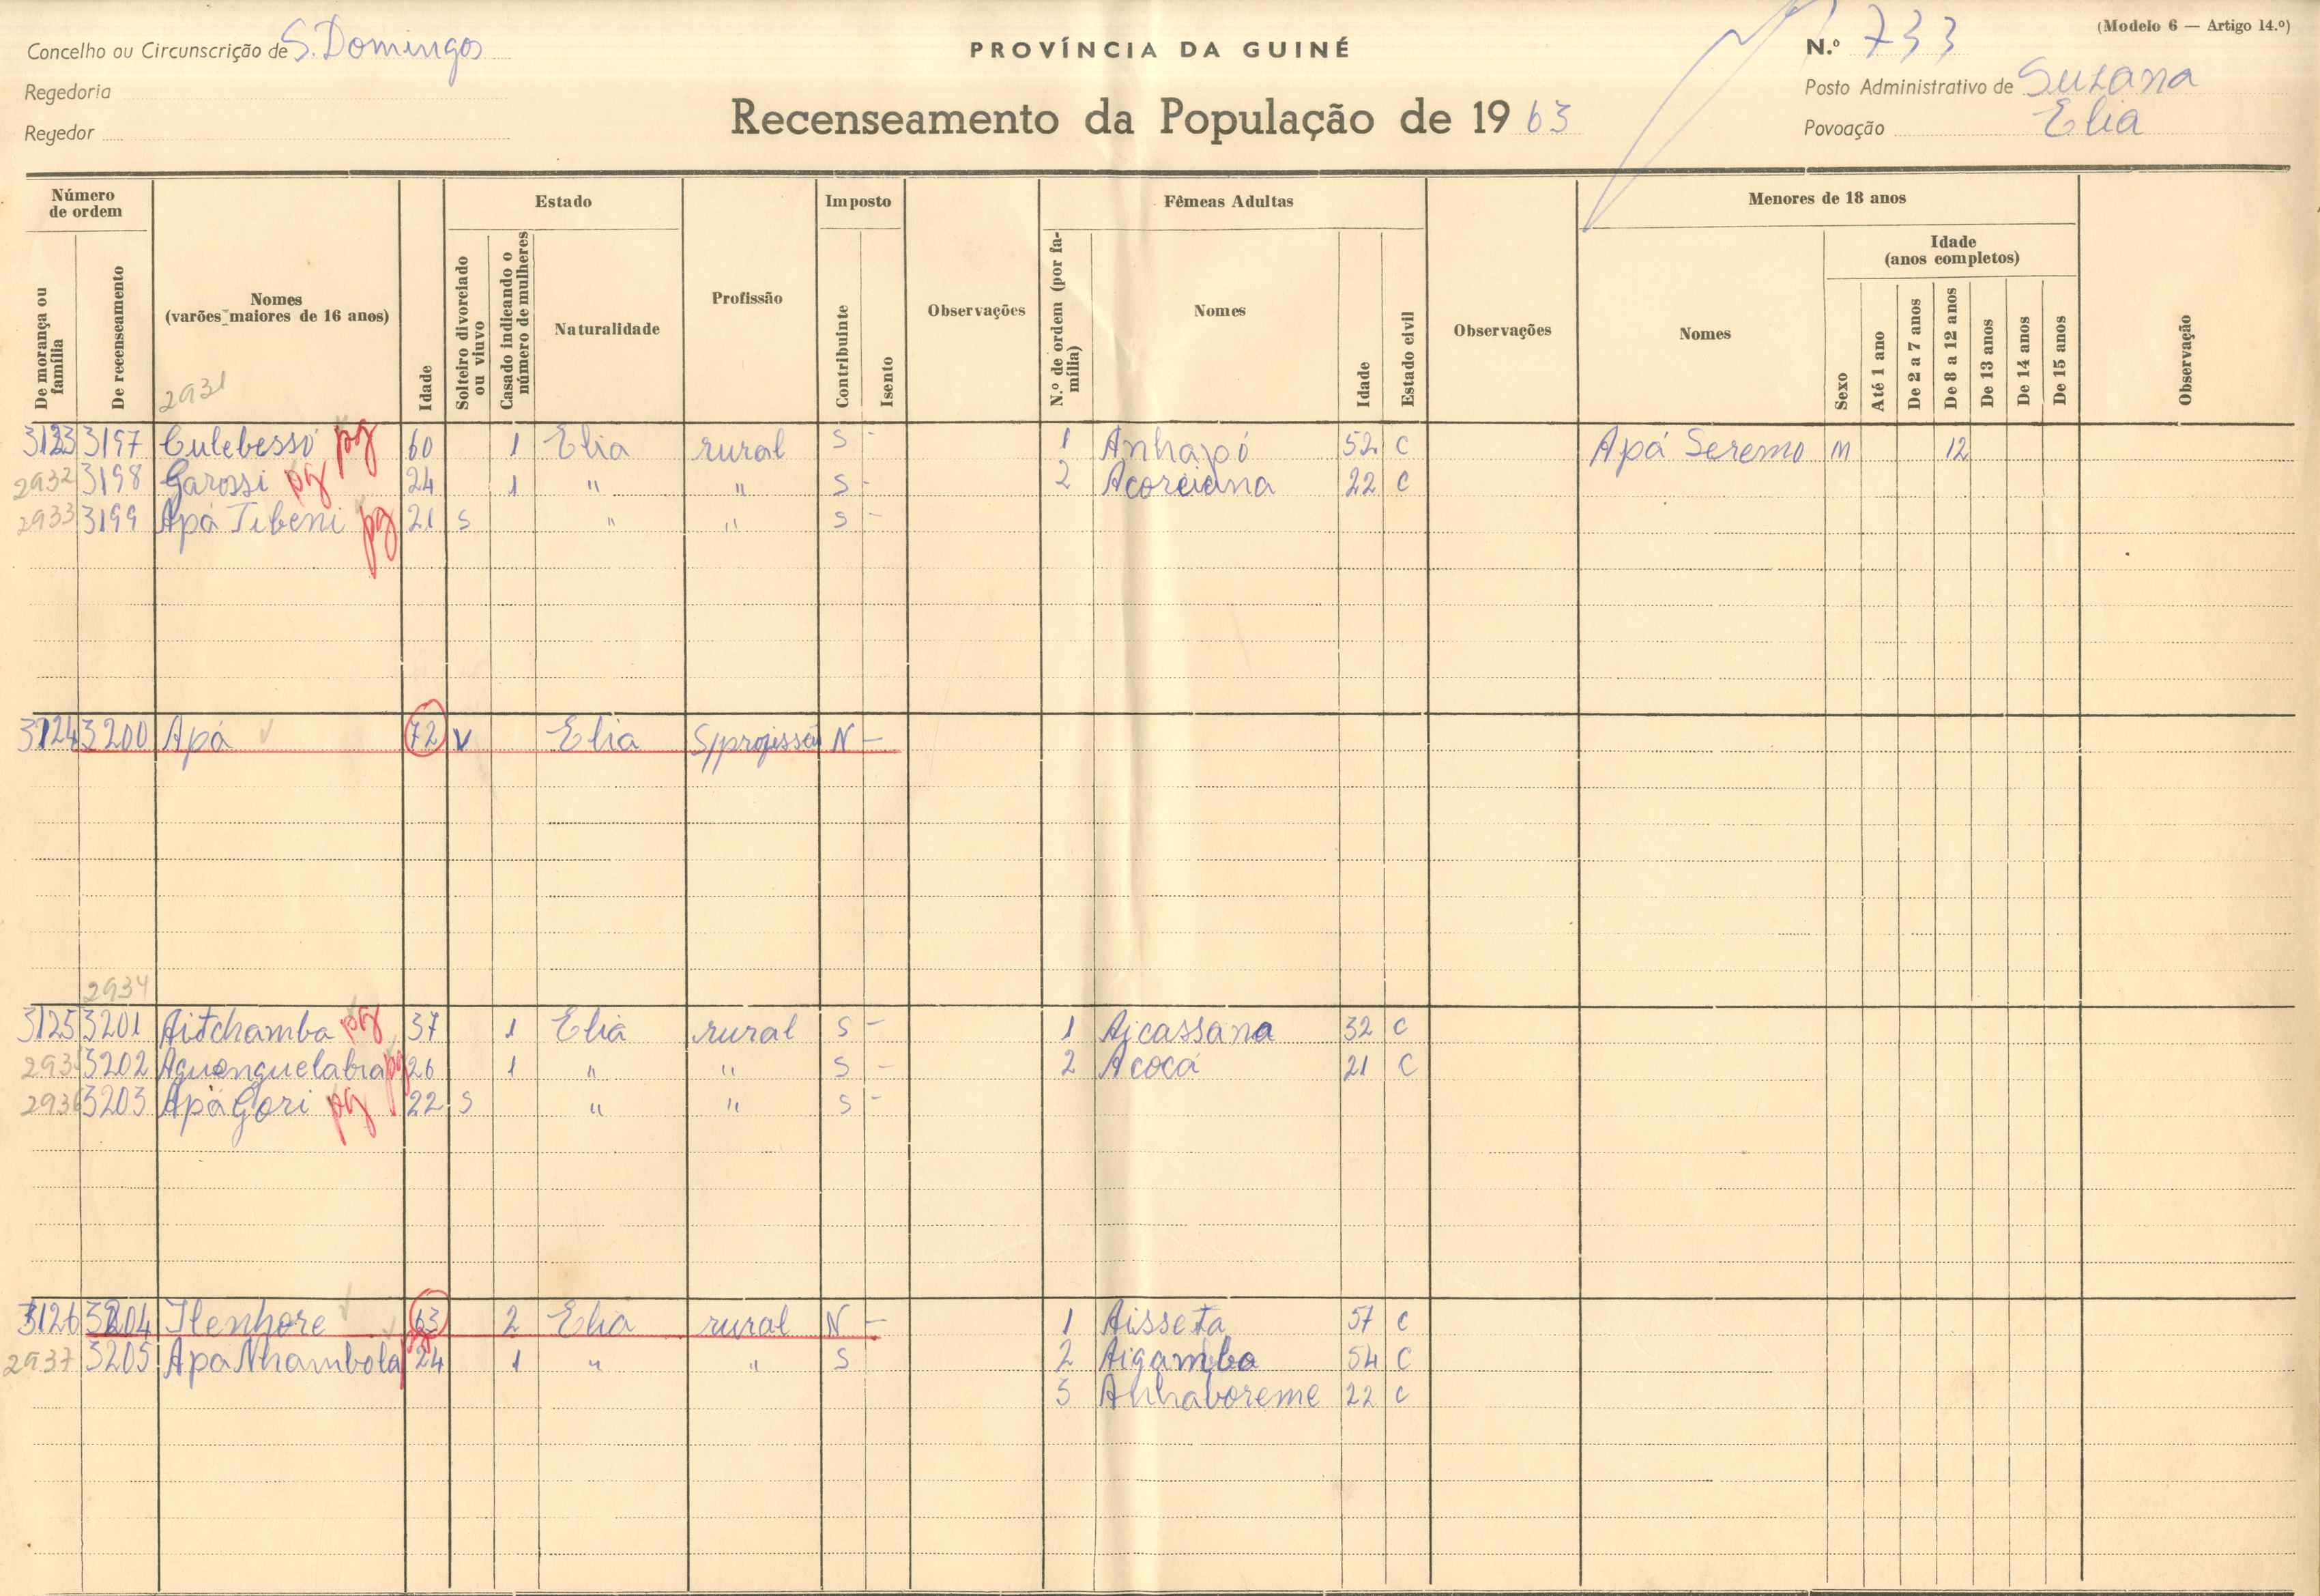 (Modelo 6 — Artigo 14.º)
Concelho ou Circunscrição de S. Domingos
PROVÍNCIA DA GUINÉ
N.º 733
Regedoria
Posto Administrativo de Suzana
Regedor
Recenseamento da População de 1963
Povoação Elia
Número de ordem
De morança ou família
De recenseamento
Nomes (varões maiores de 16 anos)
2931
Idade
Estado
Solteiro divorciado ou viuvo
Casado indicando o número de mulheres
Naturalidade
Profissão
Imposto
Contribuinte
Isento
Observações
Fêmeas Adultas
N.º de ordem (por família)
Nomes
Idade
Estado civil
Observações
Menores de 18 anos
Nomes
Sexo
Idade (anos completos)
Até 1 ano
De 2 a 7 anos
De 8 a 12 anos
De 13 anos
De 14 anos
De 15 anos
Observação
3123 3197 Culebesso pg 60 1 Elia rural S - 1 Anhapó 52 C Apá Seremo M 12
2932 3198 Garossi pg 24 1 " " S - 2 Acoreiana 22 C
2933 3199 Apá Tibeni pg 21 S " " S -
3124 3200 Apá 72 V Elia S/profissão N -
2934
3125 3201 Aitchamba pg 37 1 Elia rural S - 1 Aicassana 32 C
293 3202 Aguenguelabra pg 26 1 " " S - 2 Acocá 21 C
2936 3203 Apá Gori pg 22 S " " S -
3126 3204 Ilenhore 63 2 Elia rural N - 1 Aisseta 57 C
2937 3205 Apá Nhambola 24 1 " " S 2 Aigamba 54 C
3 Anhaboreme 22 C